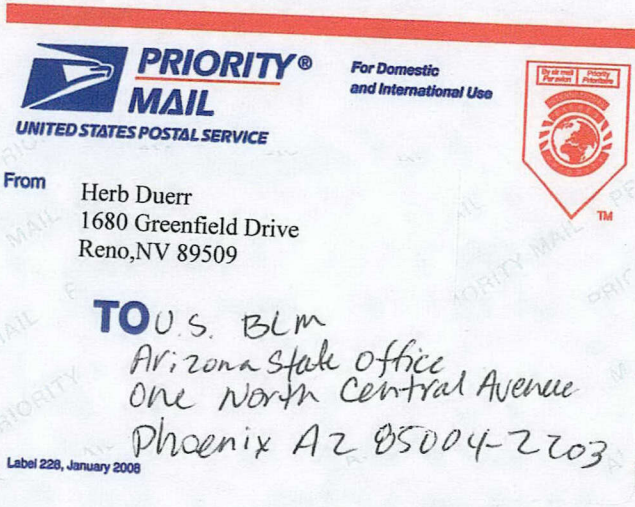 PRIORITY®
MAIL
UNITED STATES POSTAL SERVICE
For Domestic
and International Use
By air mail
Par avion
Priority
Prioritaire
TM
From
Herb Duerr
1680 Greenfield Drive
Reno,NV 89509
TO U.S. BLM
Arizona State Office
One North Central Avenue
Phoenix AZ 85004-2203
Label 228, January 2008